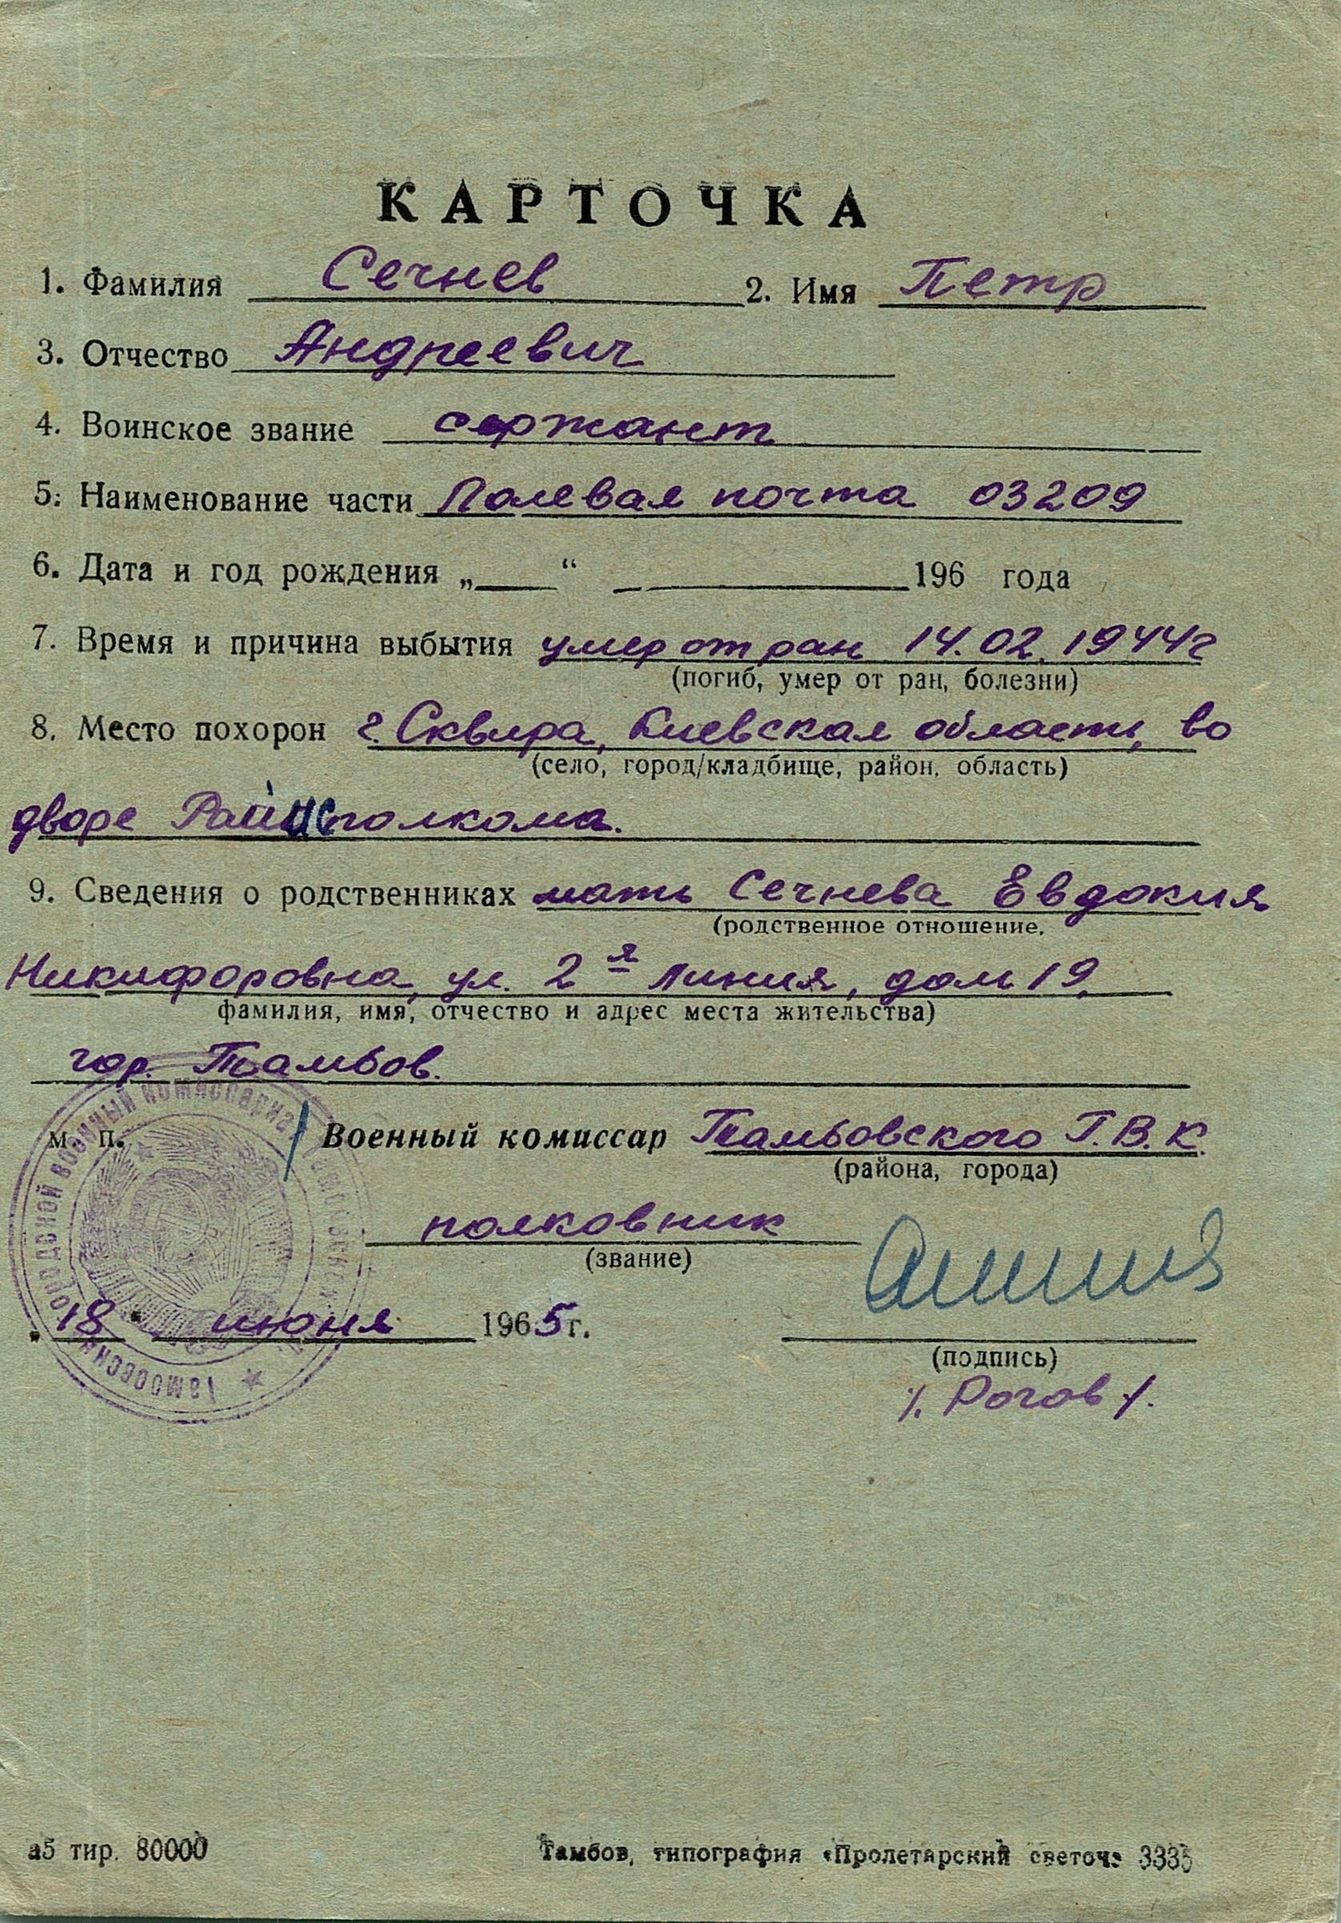 КАРТОЧКА
1. Фамилия Сечнев 2. Имя Петр
3. Отчество Андреевич
4. Воинское звание сержант
5. Наименование части Полевая почта 03209
6. Дата и год рождения „ “ 196 года
7. Время и причина выбытия умер от ран 14.02.1944г
(погиб, умер от ран, болезни)
8. Место похорон г. Сквира, Киевская область, во
(село, город/кладбище, район, область)
дворе Райисполкома.
9. Сведения о родственниках мать Сечнева Евдокия
(родственное отношение,
Никифоровна, ул. 2я линия, дом 19,
фамилия, имя, отчество и адрес места жительства)
гор. Тамбов.
м. п. Военный комиссар Тамбовского Г.В.К.
(района, города)
полковник
(звание)
„18“ июня 1965 г.
(подпись)
/. Рогов /.
Тамбовский городской военный комиссариат
а5 тир. 80000 Тамбов, типография «Пролетарский светоч» 3335